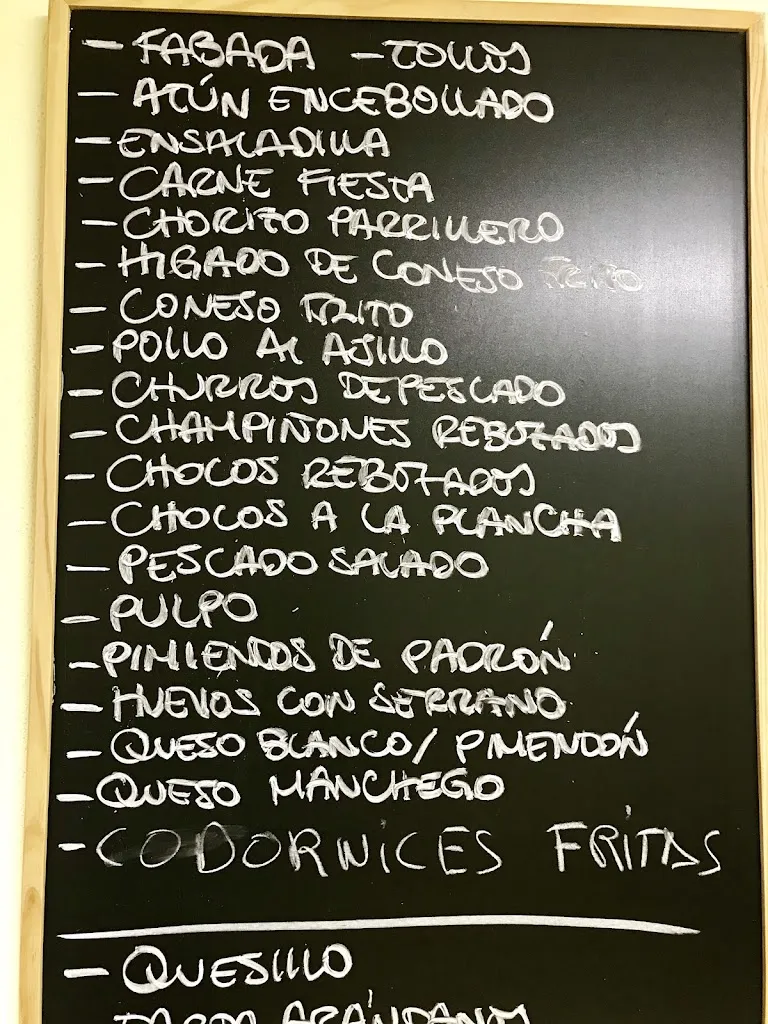 - FABADA - TOLLOS
- ATÚN ENCEBOLLADO
- ENSALADILLA
- CARNE FIESTA
- CHORIZO PARRILLERO
- HIGADO DE CONEJO FRITO
- CONEJO FRITO
- POLLO AL AJILLO
- CHURROS DE PESCADO
- CHAMPIÑONES REBOZADOS
- CHOCOS REBOZADOS
- CHOCOS A LA PLANCHA
- PESCADO SALADO
- PULPO
- PIMIENDOS DE PADRÓN
- HUEVOS CON SERRANO
- QUESO BLANCO/ PIMENDÓN
- QUESO MANCHEGO
- CODORNICES FRITAS
- QUESILLO
TARTA ARÁNDANOS